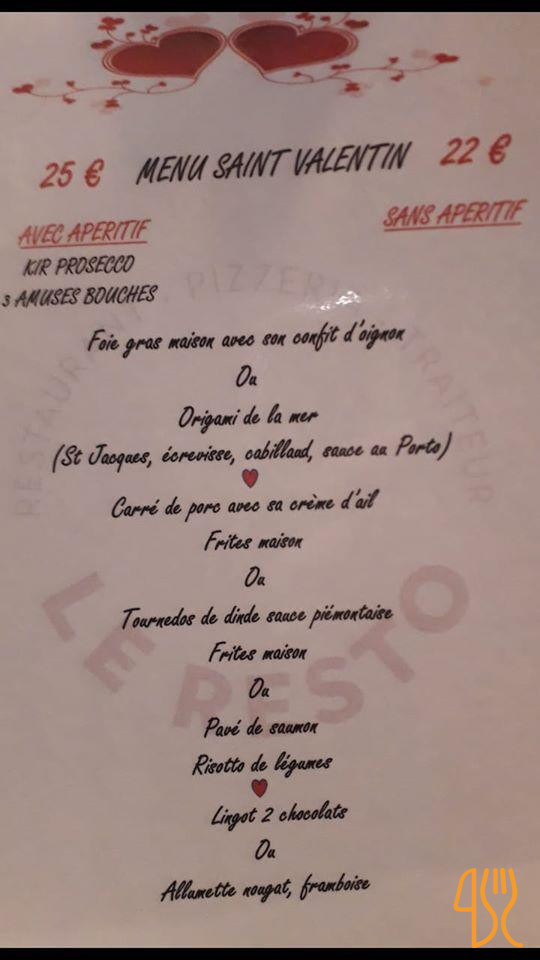 25 € MENU SAINT VALENTIN 22 €
AVEC APERITIF
SANS APERITIF
KIR PROSECCO
3 AMUSES BOUCHES
Foie gras maison avec son confit d'oignon
Ou
Origami de la mer
(St Jacques, écrevisse, cabillaud, sauce au Porto)
Carré de porc avec sa crème d'ail
Frites maison
Ou
Tournedos de dinde sauce piémontaise
Frites maison
Ou
Pavé de saumon
Risotto de légumes
Lingot 2 chocolats
Ou
Allumette nougat, framboise
RESTAURANT PIZZERIA TRAITEUR
LE RESTO